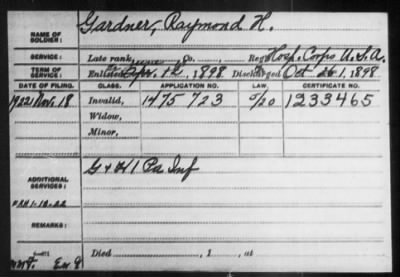 NAME OF SOLDIER: Gardner, Raymond H.
SERVICE: Late rank, Co. Reg't Hosp. Corps U.S.A.
TERM OF SERVICE: Enlisted 1898 Discharged Oct 1, 1898
DATE OF FILING. CLASS. APPLICATION NO. LAW. CERTIFICATE NO.
1922 Nov. 18 Invalid, 1475 723 5/20 1233465
Widow,
Minor,
ADDITIONAL SERVICES: G + H 1 Pa Inf
1-18-22
REMARKS:
Died , 1 , at